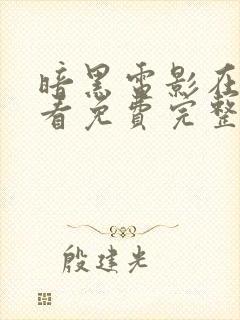 暗黑雷影在
看免费完整
殷建光